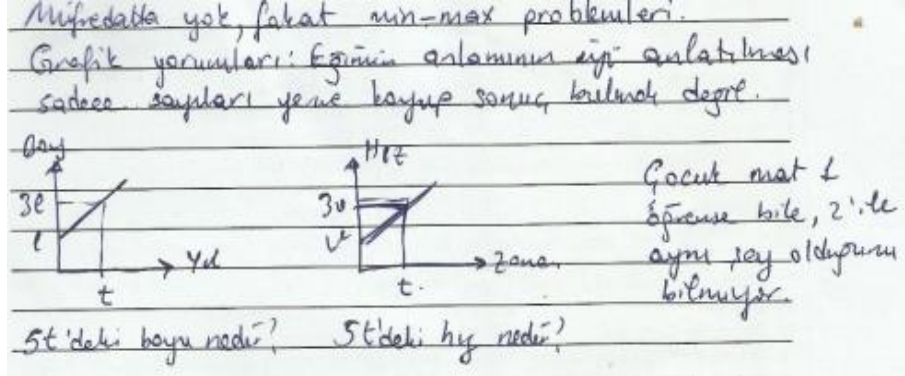 Müfredatta yok, fakat min-max problemleri.
Grafik yorumları: Eğimin anlamının iyi anlatılması
sadece sayıları yerine koyup sonuç bulmak değil.
Boy
3l
l
t
Yıl
Hız
3v
v
t.
Zaman
Çocuk mat 1
öğrense bile, 2'ile
aynı şey olduğunu
bilmiyor.
5t'deki boyu nedir? 5t'deki hız nedir?